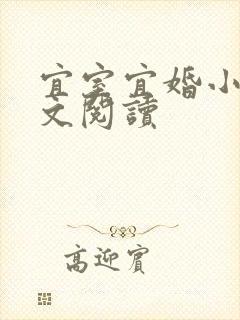 宜室宜婚小
文閱讀
高迎賓